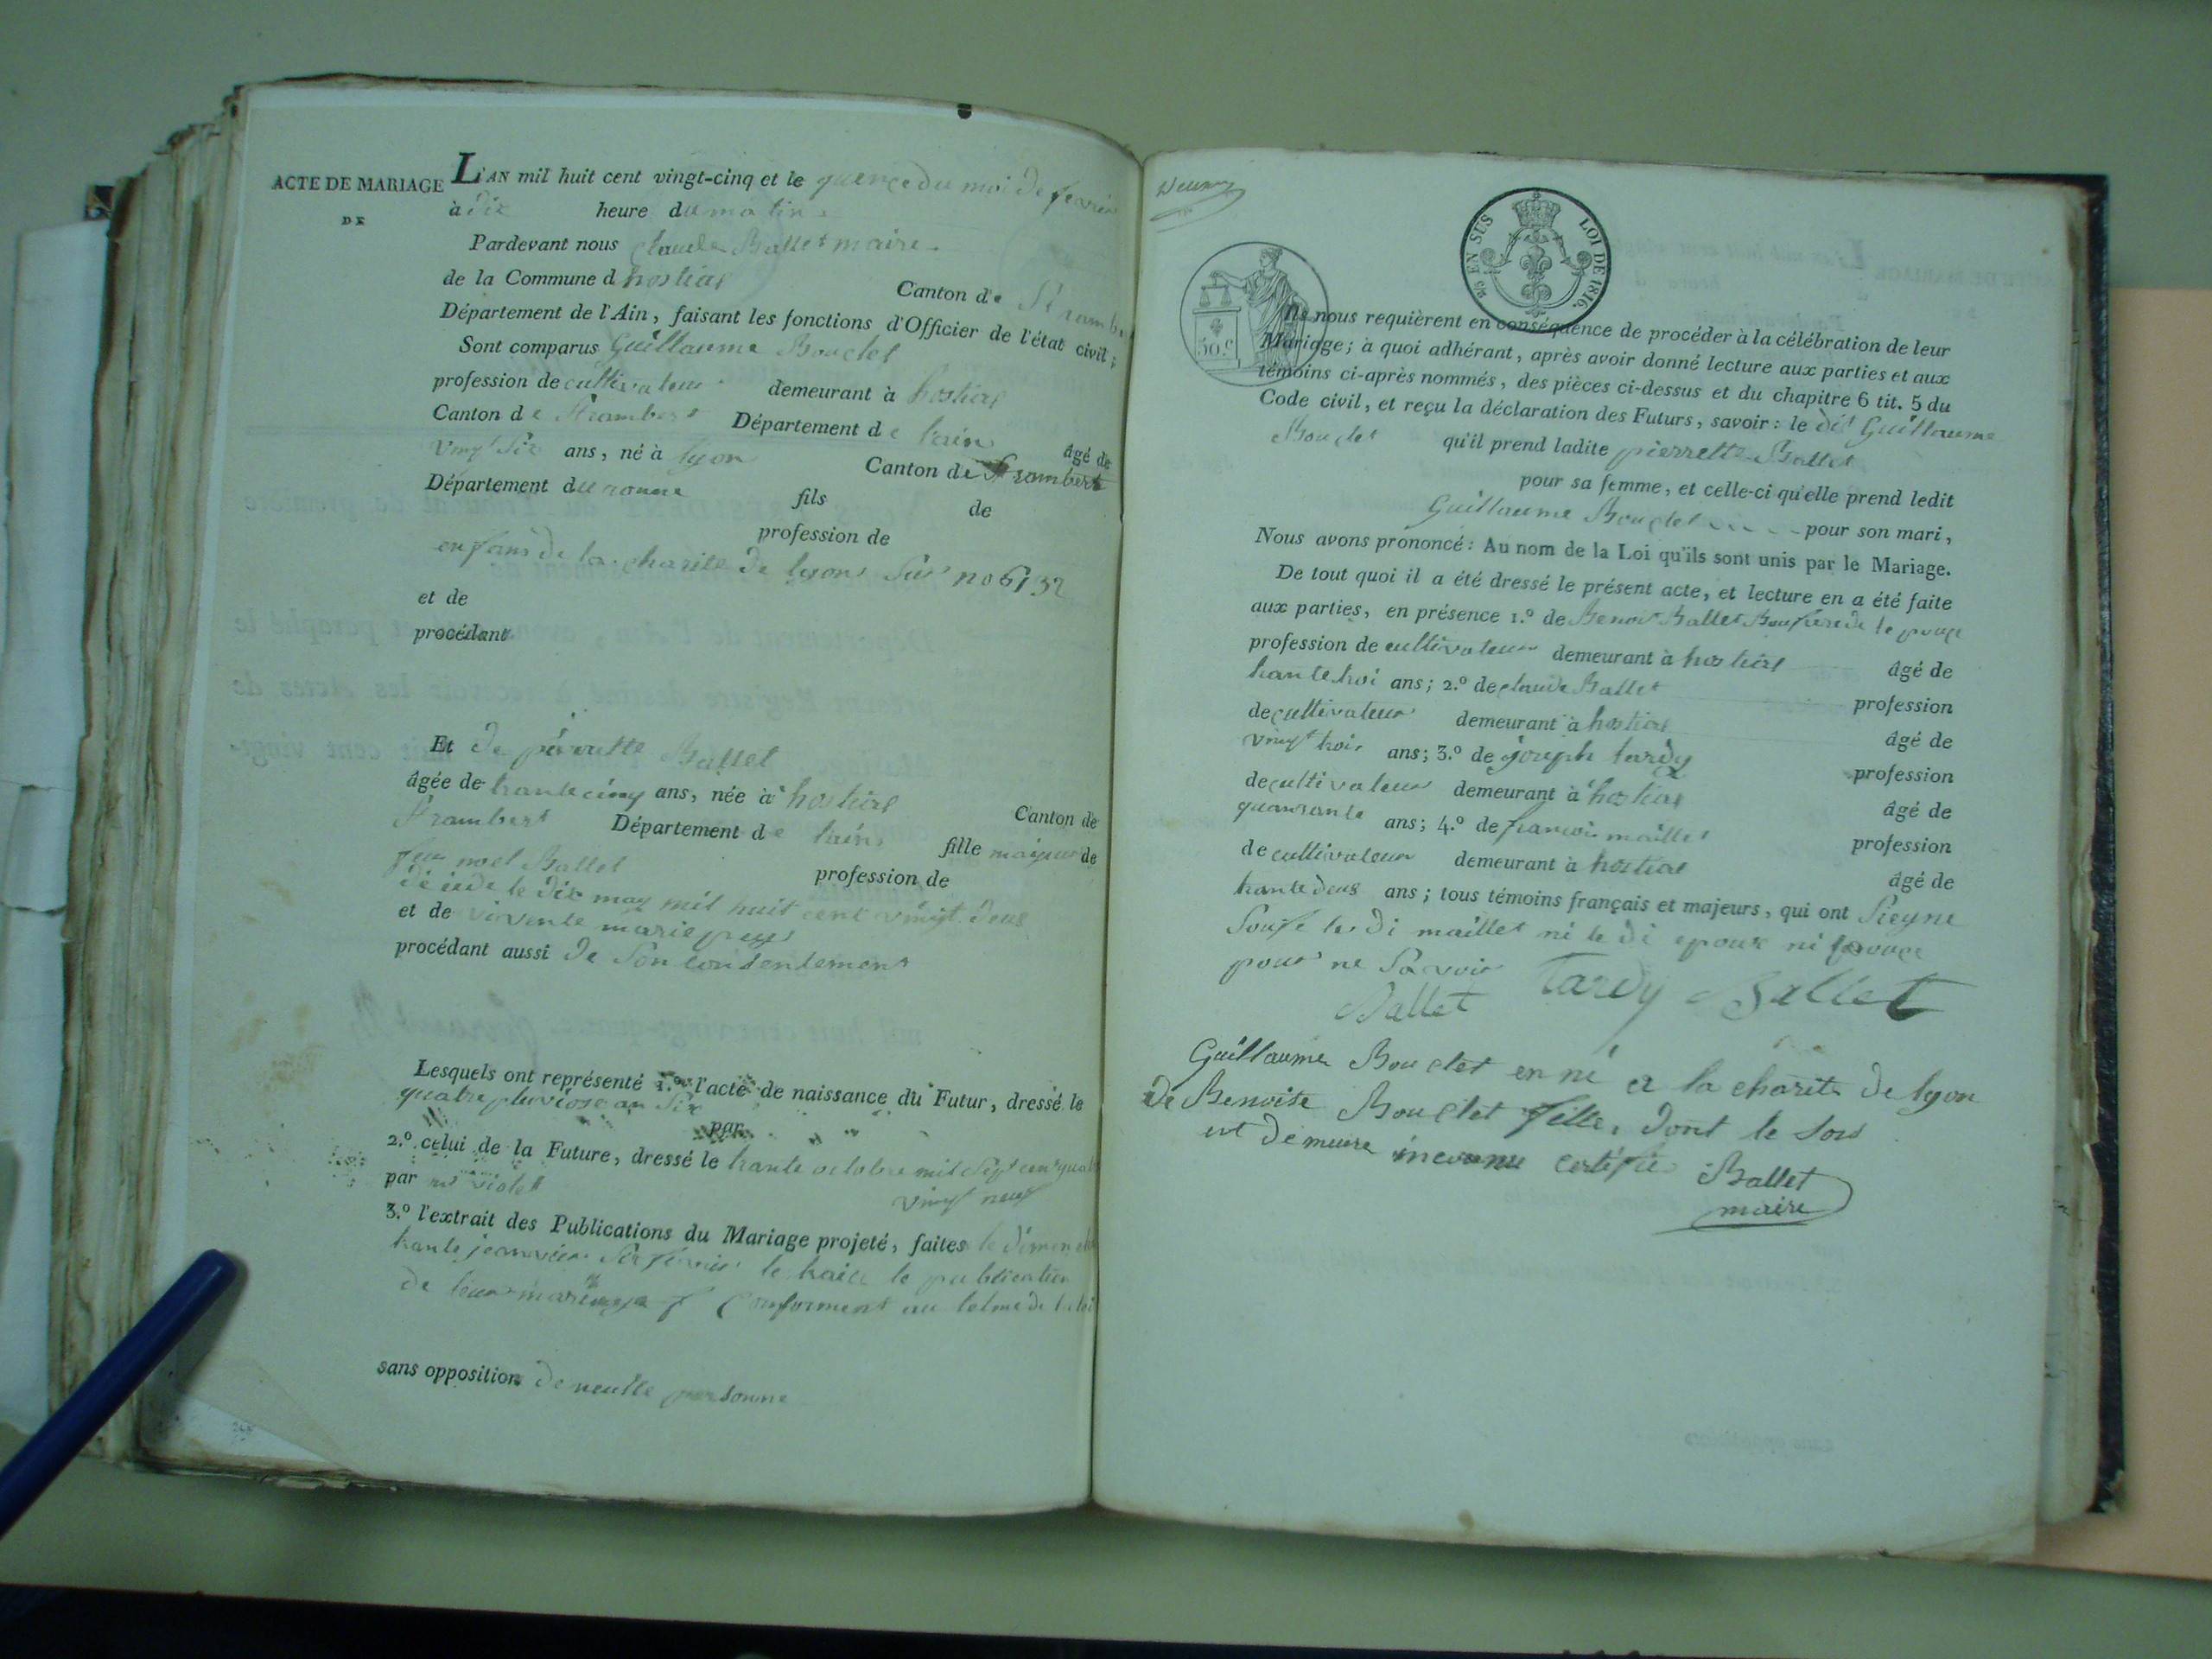 ACTE DE MARIAGE
DE
L'AN mil huit cent vingt-cinq et le quenze du moi de fevrier
à dix heure du matin
Pardevant nous claude Ballet maire
de la Commune d hostias Canton de St rambert
Département de l'Ain, faisant les fonctions d'Officier de l'état civil;
Sont comparus Guillaume Bouclet
profession de cultivateur demeurant à hostias
Canton de St rambert Département de l'ain âgé de
vingt six ans, né à lyon Canton de St rambert
Département du ronne fils de
profession de
enfans de la charité de lyon sus no 6132
et de
procédant
Et de pierrette Ballet
âgée de trante cinq ans, née à hostias Canton de
St rambert Département de l'ain fille majeur de
feu noel Ballet profession de
décédé le dix may mil huit cent vingt deus
et de vivente marie
procédant aussi de son consentement
Lesquels ont représenté 1.º l'acte de naissance du Futur, dressé le
quatre pluviose an six par
2.º celui de la Future, dressé le trante octobre mil sept cent quatre
vingt neuf
par mr violet
3.º l'extrait des Publications du Mariage projeté, faites le dimenche
trante janvier six fevrier le publication
de leur mariage conforment au telme de la loi
sans opposition de neulle personne
50.c
EN SUS LOI DE 1816.
Ils nous requièrent en conséquence de procéder à la célébration de leur
Mariage; à quoi adhérant, après avoir donné lecture aux parties et aux
témoins ci-après nommés, des pièces ci-dessus et du chapitre 6 tit. 5 du
Code civil, et reçu la déclaration des Futurs, savoir: le dit Guillaume
Bouclet qu'il prend ladite pierrette Ballet
pour sa femme, et celle-ci qu'elle prend ledit
Guillaume Bouclet pour son mari,
Nous avons prononcé: Au nom de la Loi qu'ils sont unis par le Mariage.
De tout quoi il a été dressé le présent acte, et lecture en a été faite
aux parties, en présence 1.º de Benoit Ballet Boufrere de le pouse
profession de cultivateur demeurant à hostias âgé de
trante troi ans; 2.º de claude Ballet profession
de cultivateur demeurant à hostias âgé de
vingt trois ans; 3.º de joseph tardy profession
de cultivateur demeurant à hostias âgé de
quarante ans; 4.º de francoi maillet profession
de cultivateur demeurant à hostias âgé de
trante deus ans; tous témoins français et majeurs, qui ont Sieyne
Soufe le di maillet ni le di epoux ni epouse
pour ne Savoir
Ballet Tardy Ballet
Guillaume Bouclet en né a la charité de lyon
de Benoite Bouclet fille, dont le sor
est demeure inconnu certifie Ballet
maire